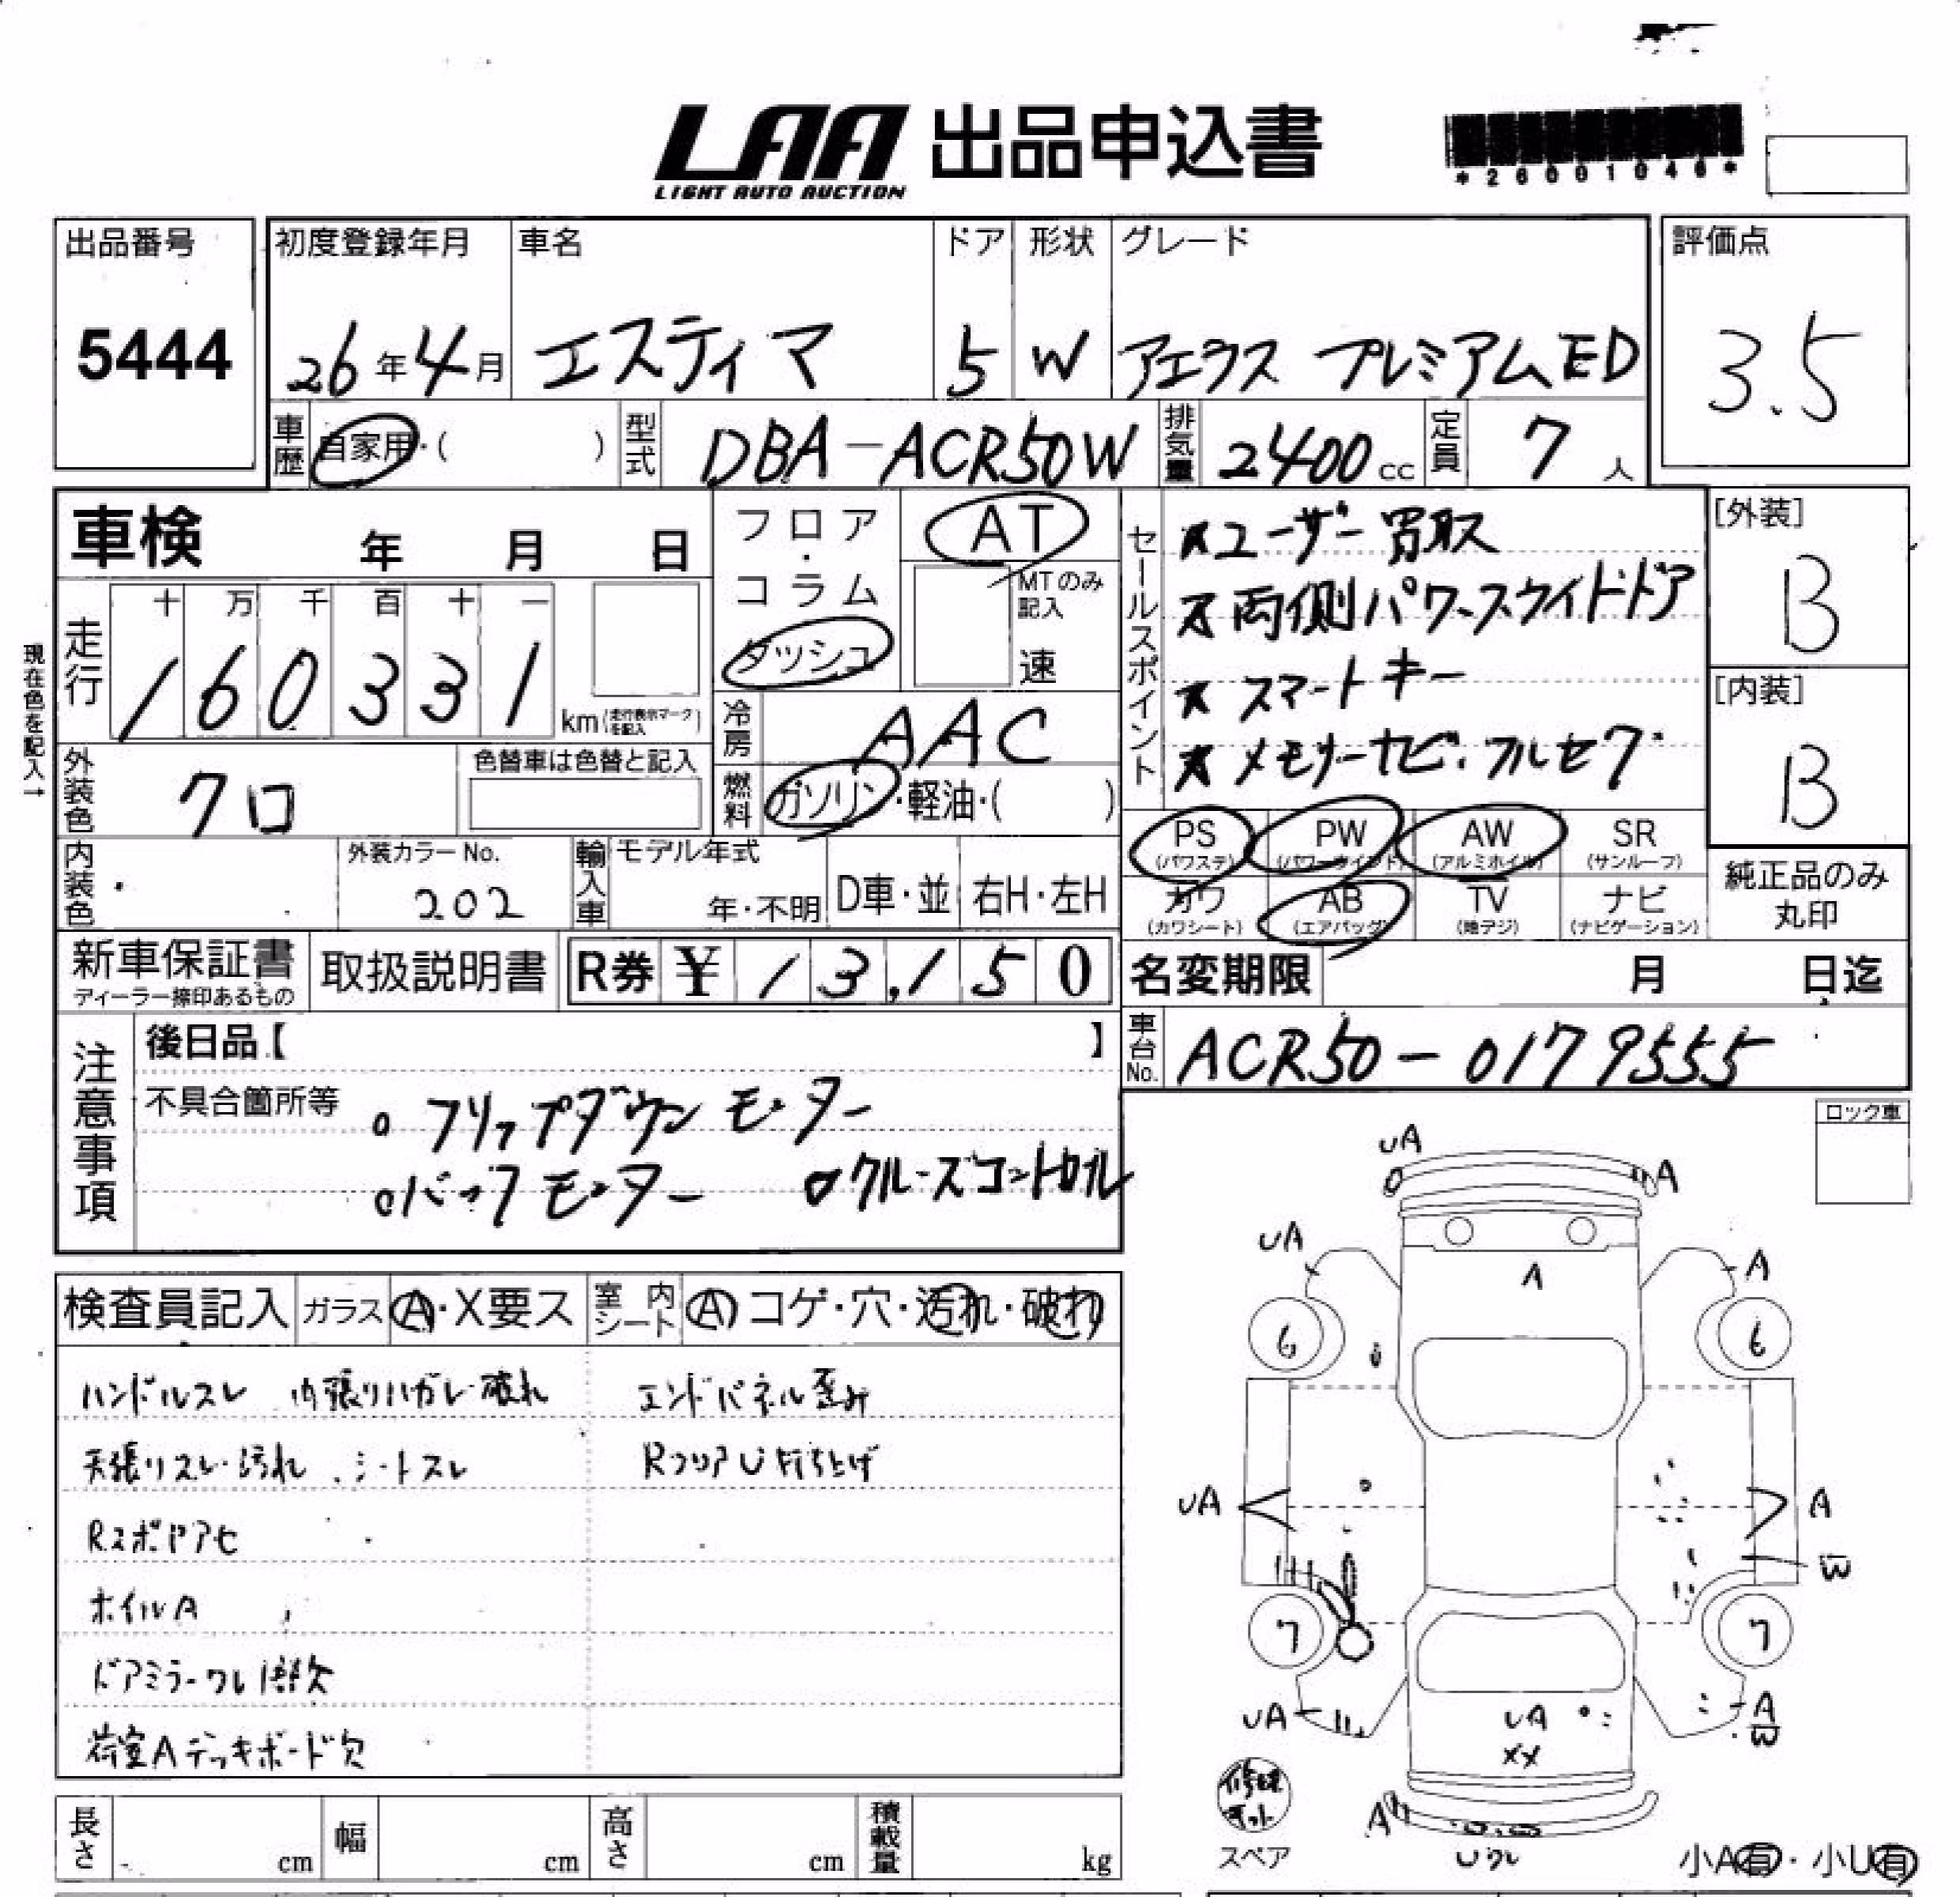 LAA 出品申込書
LIGHT AUTO AUCTION
*26001046*
出品番号
5444
初度登録年月
26年4月
車名
エスティマ
ドア
5
形状
W
グレード
アエラス プレミアムED
評価点
3.5
車歴
自家用・( )
型式
DBA-ACR50W
排気量
2400cc
定員
7人
車検 年 月 日
フロア・コラム
ダッシュ
AT
MTのみ記入
速
セールスポイント
★ユーザー買取
★両側パワースライドドア
★スマートキー
★メモリーナビ・フルセグ
[外装]
B
[内装]
B
現在色を記入→
走行
十 万 千 百 十 一
160331
km(走行表示マークを記入)
冷房
AAC
外装色
クロ
色替車は色替と記入
燃料
ガソリン・軽油・( )
PS (パワステ)
PW (パワーウインド)
AW (アルミホイル)
SR (サンルーフ)
カワ (カワシート)
AB (エアバッグ)
TV (地デジ)
ナビ (ナビゲーション)
純正品のみ
丸印
内装色
外装カラーNo.
202
輸入車
モデル年式
年・不明
D車・並
右H・左H
新車保証書
ディーラー捺印あるもの
取扱説明書
R券 ¥ 13,150
名変期限 月 日迄
車台No.
ACR50-0179555
注意事項
後日品【 】
不具合箇所等
o フリップダウンモニター
oバックモニター oクルーズコントロール
ロック車
検査員記入
ガラス A・X要ス
室内シート A コゲ・穴・汚れ・破れ
ハンドルスレ 内張りハガレ・破れ
天張りスレ・汚れ シートスレ
ホイルA
荷室Aデッキボード欠
エンドパネル歪み
RフロアU折ち上げ
UA
A
UA
A
A
6
6
UA
A
W
7
7
UA
A
W
UA
XX
A
修理キット
スペア
小A有・小U有
長さ cm
幅 cm
高さ cm
積載量 kg